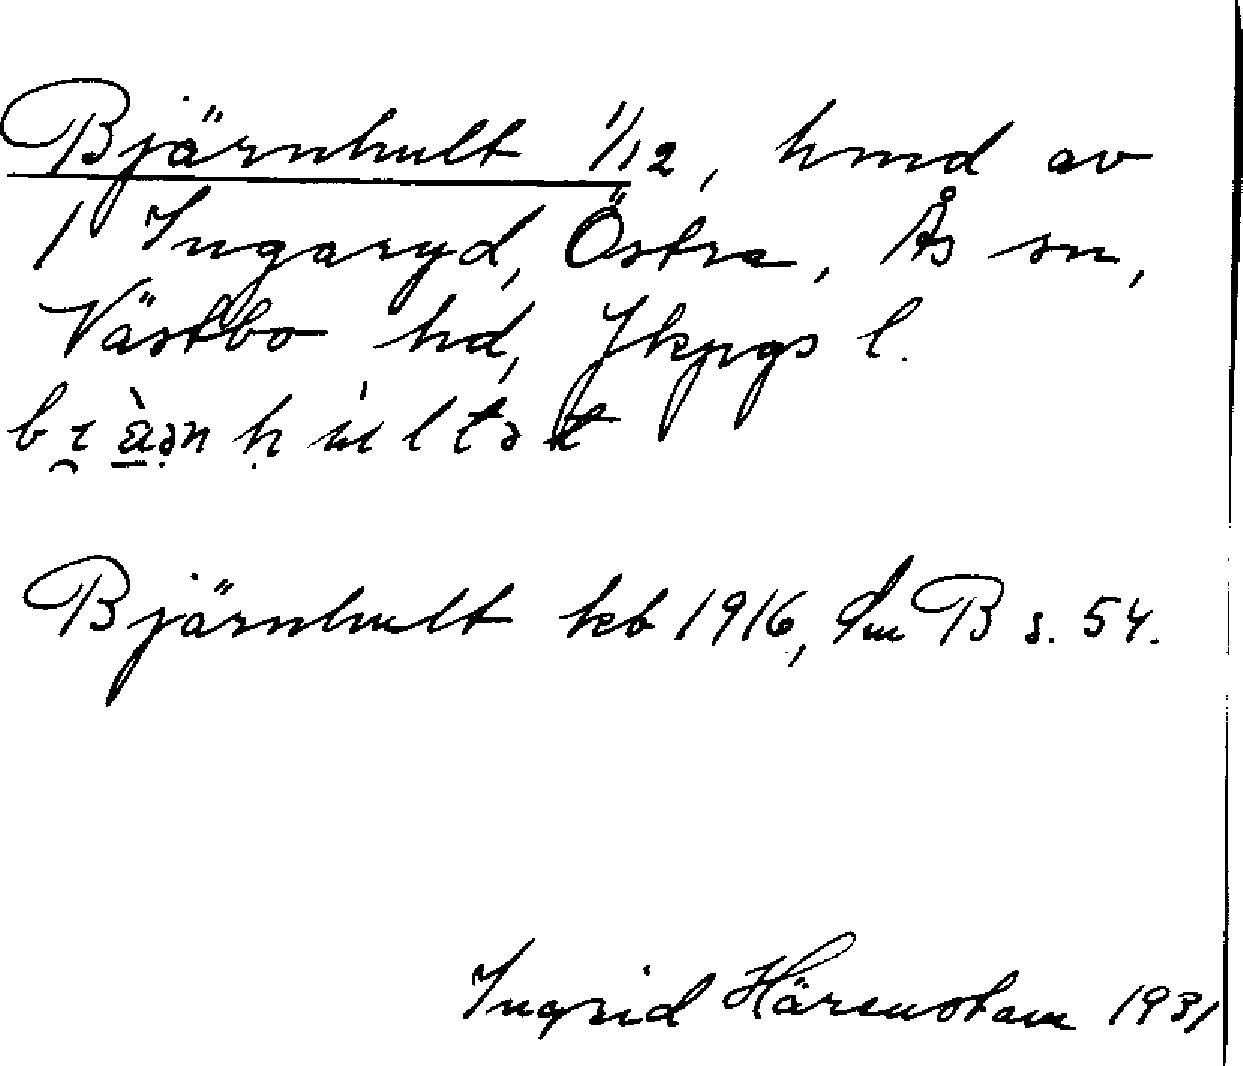 Bjärnhult 1/12, hmd av
1 Ingaryd, Östra, Ås sn,
Västbo hd, Jkpgs l.
Bjärnhult kb 1916, B s. 54.
Ingrid Härenstam 1931